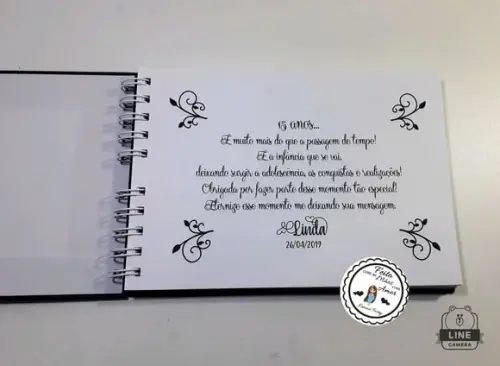 15 anos...
É muito mais do que a passagem do tempo!
É a infância que se vai,
deixando surgir a adolescência, as conquistas e realizações!
Obrigada por fazer parte desse momento tão especial!
Eternize esse momento me deixando sua mensagem.
Linda
26/04/2019
Feito
Amor
LINE
CAMERA